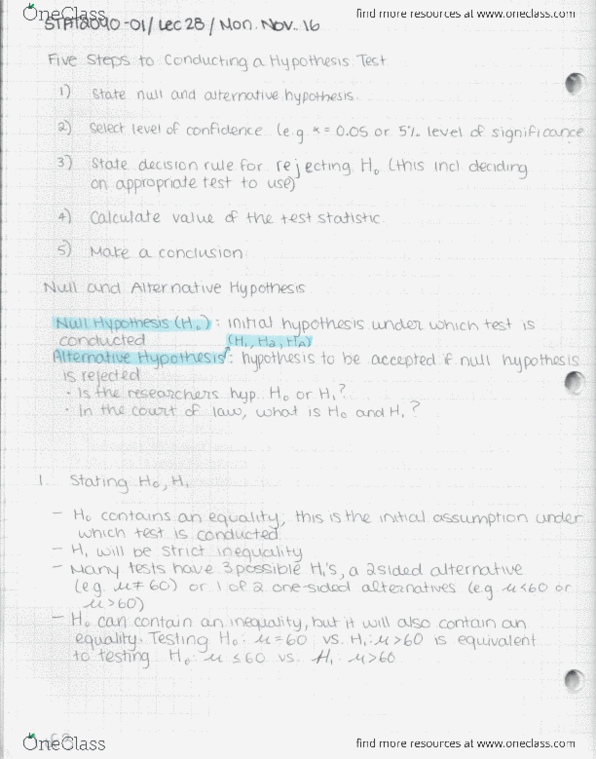 OneClass find more resources at www.oneclass.com
STAT2040-01/Lec 28/Mon. Nov. 16
Five Steps to Conducting a Hypothesis Test
1) State null and alternative hypothesis.
2) Select level of confidence (e.g. ∝ = 0.05 or 5% level of significance
3) State decision rule for rejecting H₀ (this incl deciding
on appropriate test to use)
4) Calculate value of the test statistic
5) Make a conclusion
Null and Alternative Hypothesis
Null Hypothesis (H₀): initial hypothesis under which test is
conducted (H₁, Ha, HA)
Alternative Hypothesis: hypothesis to be accepted if null hypothesis
is rejected
· Is the researchers hyp. H₀ or H₁?
· In the court of law, what is H₀ and H₁?
1. Stating H₀, H₁
- H₀ contains an equality, this is the initial assumption under
which test is conducted
- H₁ will be strict inequality
- Many tests have 3 possible H₁'s, a 2 sided alternative
(e.g. μ ≠ 60) or 1 of 2 one-sided alternatives (e.g μ<60 or
μ>60)
- H₀ can contain an inequality, but it will also contain an
equality. Testing H₀: μ=60 vs. H₁: μ>60 is equivalent
to testing H₀: μ ≤60 vs. H₁: μ>60
OneClass find more resources at www.oneclass.com